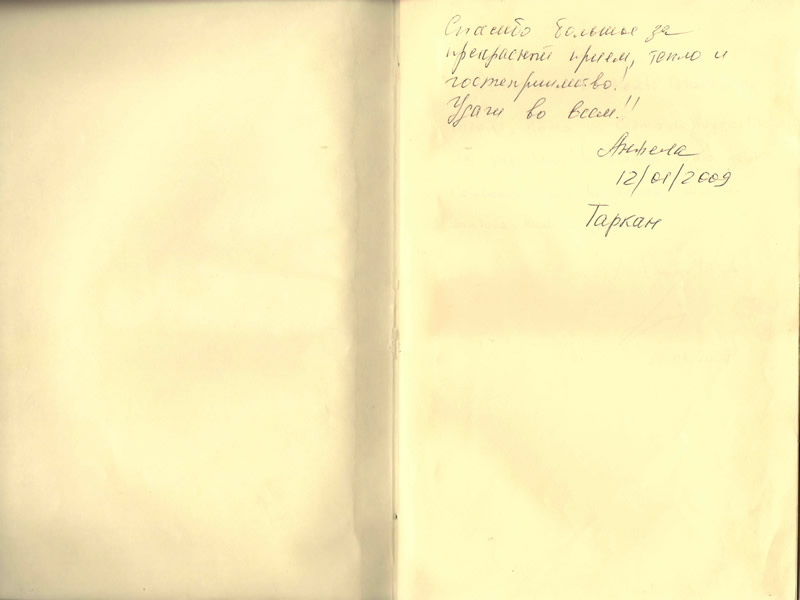 Спасибо большое за
прекрасный прием, тепло и
гостеприимство!
Удачи во всем!!
Анжела
12/01/2009
Таркан